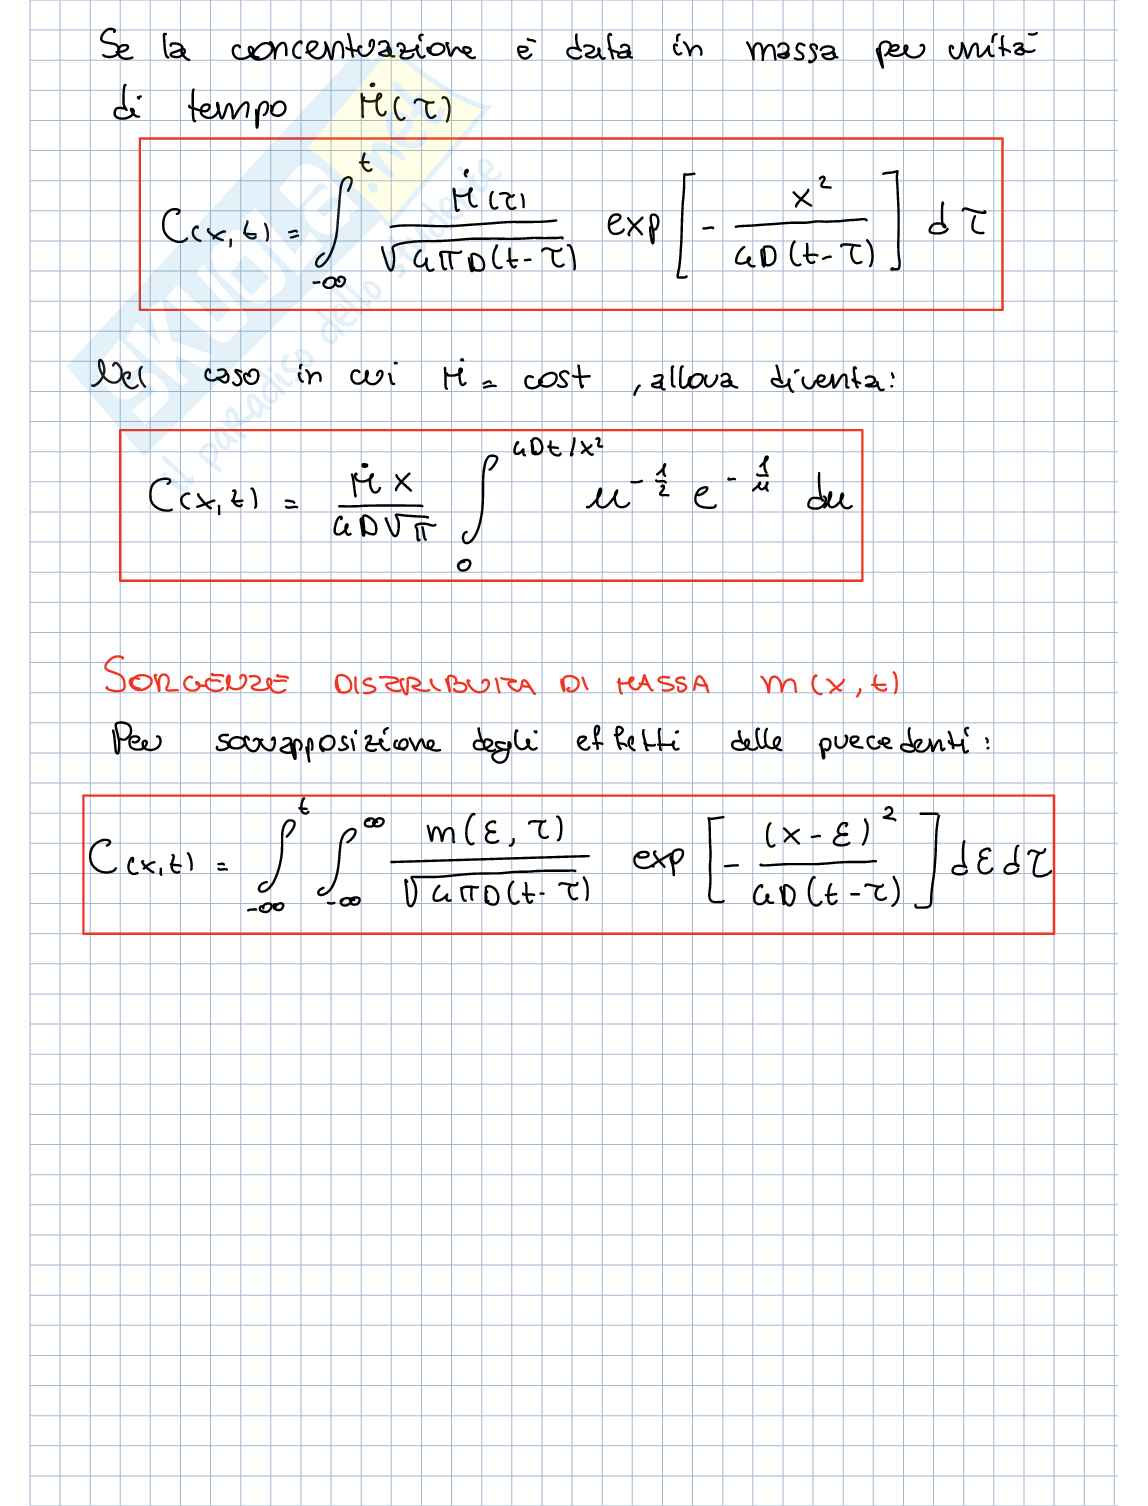 Se la concentrazione è data in massa per unità
di tempo Ṁ(τ)
C(x,t) = ∫_{-∞}^{t} Ṁ(τ) / √(4πD(t-τ)) exp[- x² / 4D(t-τ)] dτ
Nel caso in cui Ṁ = cost , allora diventa:
C(x,t) = Ṁx / 4D√π ∫_{0}^{4Dt/x²} u^{-1/2} e^{-1/u} du
SORGENZE DISTRIBUITA DI MASSA m(x,t)
Per sovrapposizione degli effetti delle precedenti:
C(x,t) = ∫_{-∞}^{t} ∫_{-∞}^{∞} m(ε,τ) / √(4πD(t-τ)) exp[- (x-ε)² / 4D(t-τ)] dε dτ
SKUOLA.net
il paradiso dello studente